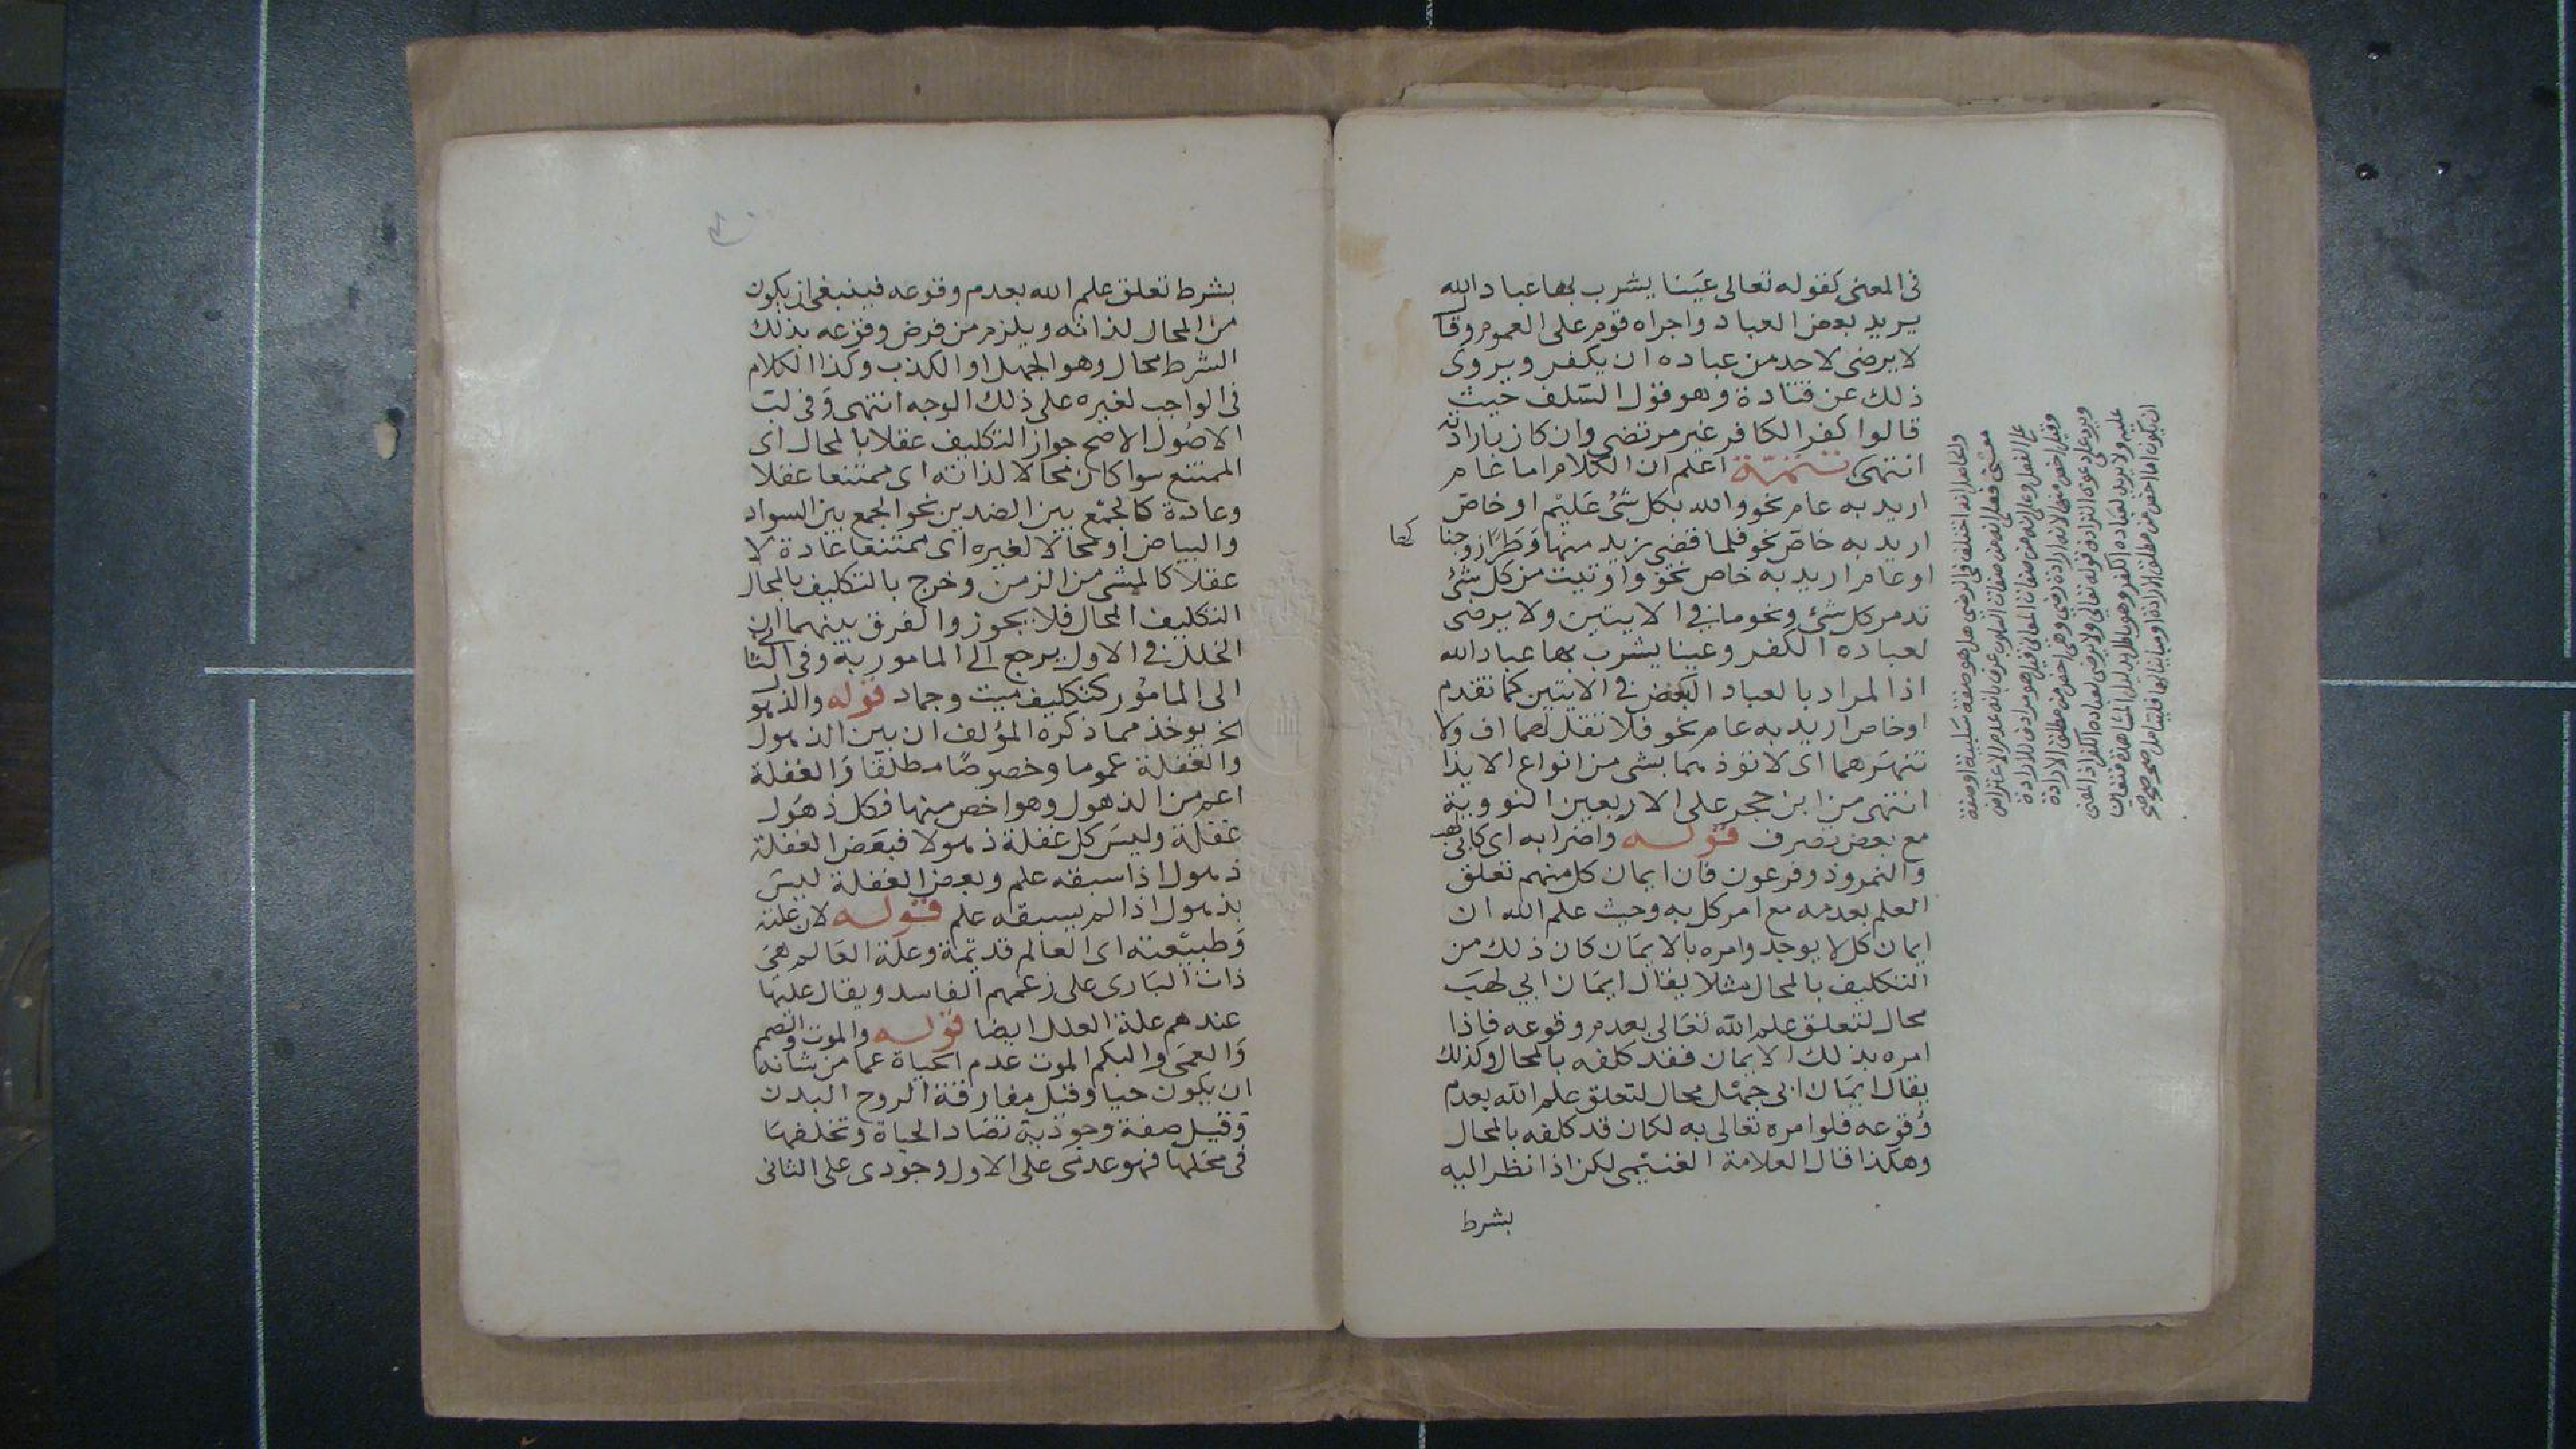 في المعنى كقوله تعالى عينا يشرب بها عباد الله
يريد بعض العباد واجراه قوم على العموم وقال
لا يرضى لاحد من عباده ان يكفر ويروى
ذلك عن قتادة وهو قول السلف حيث
قالوا كفر الكافر غير مرتضى وان كان بارادته
انتهى تتمة اعلم ان الكلام اما عام
اريد به عام نحو والله بكل شئ عليم او خاص
اريد به خاص نحو فلما قضى زيد منها وطرا زوجنا
كها
او عام اريد به خاص نحو واوتيت من كل شئ
تدمر كل شئ ونحو ما في الايتين ولا يرضى
لعباده الكفر وعينا يشرب بها عباد الله
اذ المراد بالعباد البعض في الايتين كما تقدم
او خاص اريد به عام نحو فلا تقل لهما اف ولا
تنهرهما اى لا تؤذهما بشى من انواع الايذا
انتهى من ابن حجر على الاربعين النووية
مع بعض تصرف قوله واضرابه اى كابى لهب
والنمروذ وفرعون فان ايمان كل منهم تعلق
العلم بعدمه مع امر كل به وحيث علم الله ان
ايمان كل لا يوجد وامره بالايمان كان ذلك من
التكليف بالمحال مثلا يقال ايمان ابي لهب
محال لتعلق علم الله تعالى بعدم وقوعه فاذا
امره بذلك الايمان فقد كلفه بالمحال وكذلك
يقال ايمان ابى جهل محال لتعلق علم الله بعدم
وقوعه فلو امره تعالى به لكان قد كلفه بالمحال
وهكذا قال العلامة الغنيمى لكن اذا نظر اليه
بشرط
والحاصل انه اختلف فى الرضى هل هو صفة سلبية او صفة
معنى فقيل انه من صفات السلوب عرف بانه عدم الاعتراض
على الفعل وقيل انه من صفات المعانى قيل هو مرادف للارادة
وقيل اخص منها لانه ارادة رضى وهى اخص من مطلق الارادة
ويرد على دعوى الترادف قوله تعالى ولا يرضى لعباده الكفر اذ المعنى
عليه ولا يريد لعباده الكفر وهو باطل بدليل المشاهدة فتعين
ان يكون اما اخص من مطلق الارادة او مباينا لها فليتامل صح صح صح
بشرط تعلق علم الله بعدم وقوعه فينبغى ان يكون
من المحال لذاته ويلزم من فرض وقوعه بذلك
الشرط محال وهو الجهل او الكذب وكذا الكلام
فى الواجب لغيره على ذلك الوجه انتهى وفى لب
الاصول الاصح جواز التكليف عقلا بالمحال اى
الممتنع سوا كان محالا لذاته اى ممتنعا عقلا
وعادة كالجمع بين الضدين نحو الجمع بين السواد
والبياض او محالا لغيره اى ممتنعا عادة لا
عقلا كالمشى من الزمن وخرج بالتكليف بالمحال
التكليف المحال فلا يجوز والفرق بينهما ان
الخلل فى الاول يرجع الى المامور به وفى الثانى
الى المامور كتكليف ميت وجماد قوله والذهول
الخ يوخذ مما ذكره المؤلف ان بين الذهول
والغفلة عموما وخصوصا مطلقا فالغفلة
اعم من الذهول وهو اخص منها فكل ذهول
غفلة وليس كل غفلة ذهولا فبعض الغفلة
ذهول اذا سبقه علم وبعض الغفلة ليس
بذهول اذا لم يسبقه علم قوله لان علته
وطبيعته اى العالم قديمة وعلة العالم هى
ذات البارى على زعمهم الفاسد ويقال علتها
عندهم علة العلل ايضا قوله والموت والصمم
والعمى والبكم الموت عدم الحياة عما من شانه
ان يكون حيا وقيل مفارقة الروح البدن
وقيل صفة وجودية تضاد الحياة وتخلفها
فى محلها فهو عدمى على الاول وجودى على الثانى